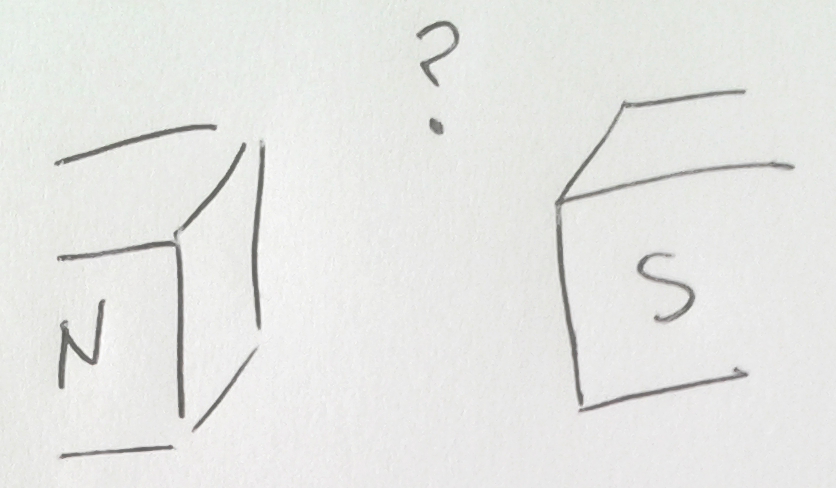 ?
N S